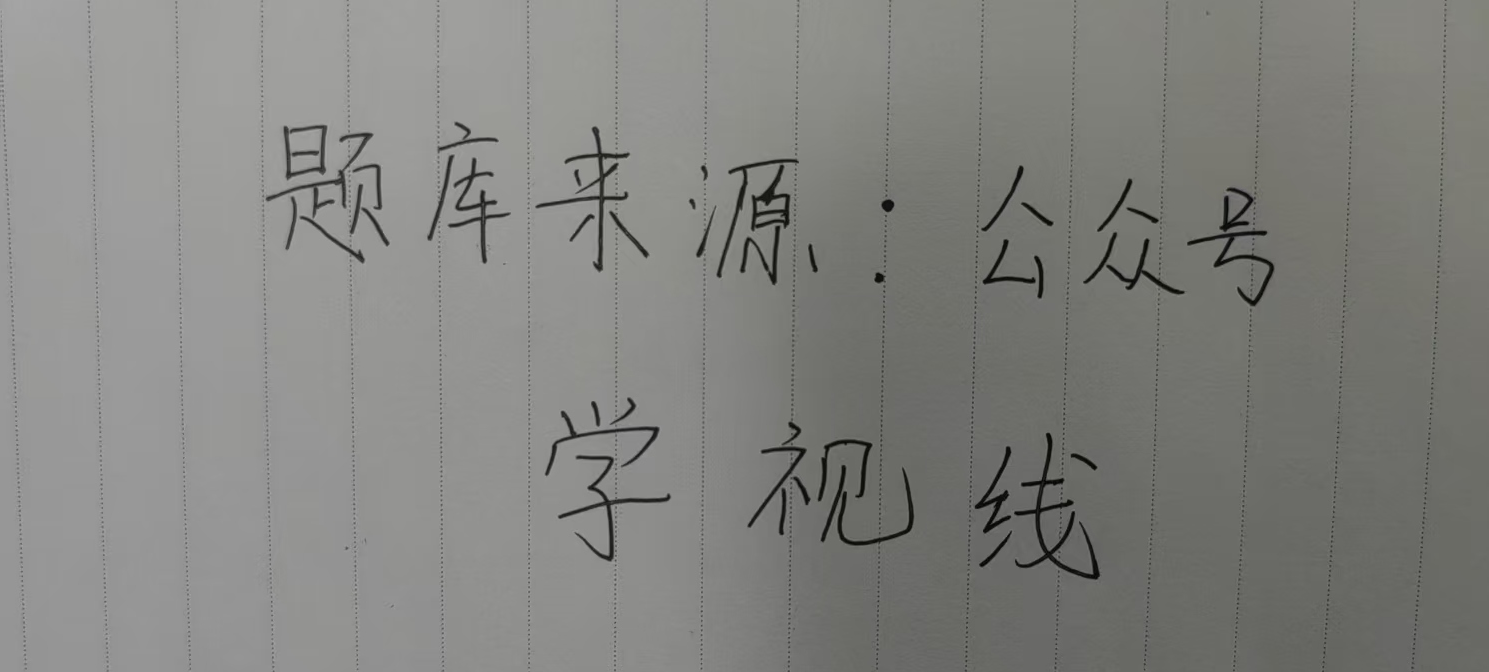 题库来源：公众号
学视线